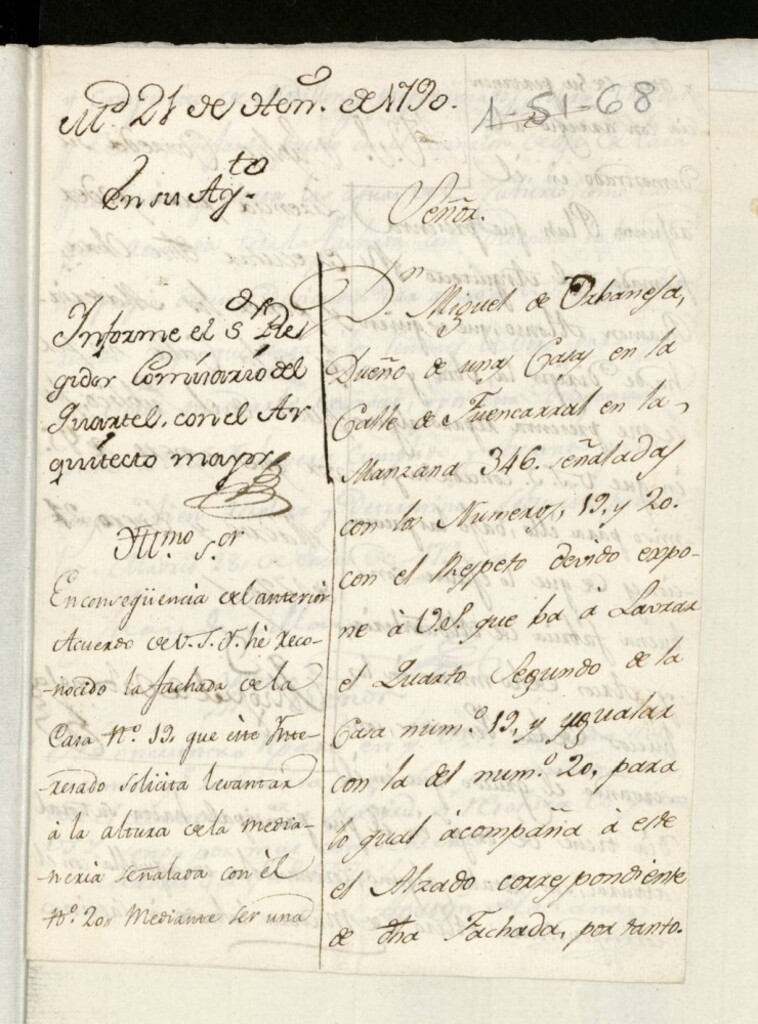 M.d 21 de Hen.o de 1790.
1-51-68
En su Ay.to
Informe el S.r Re
gidor Comisario del
Quartel, con el Ar
quitecto mayor
Yll.mo S.or
En conseqüencia del anterior
Acuerdo de V.S.Y. hè reco-
nocido la fachada de la
Casa N.o 19. que este Ynte-
resado solicita levantar
à la altura de la media-
neria señalada con èl
N.o 20, Mediante ser una
Señor.
D.n Miguel de Orbanesa,
Dueño de unas Casas en la
Calle de Fuencarral en la
Manzana 346. señaladas
con los Numeros, 19, y 20.
con el Respeto devido expo-
ne à V.S. que ba à Lavrar
el Quarto Segundo de la
Casa num.o 19, y ygualar
con la del num.o 20, para
lo qual àcompaña à este
el Alzado correspondiente
de dha Fachada, por tanto.